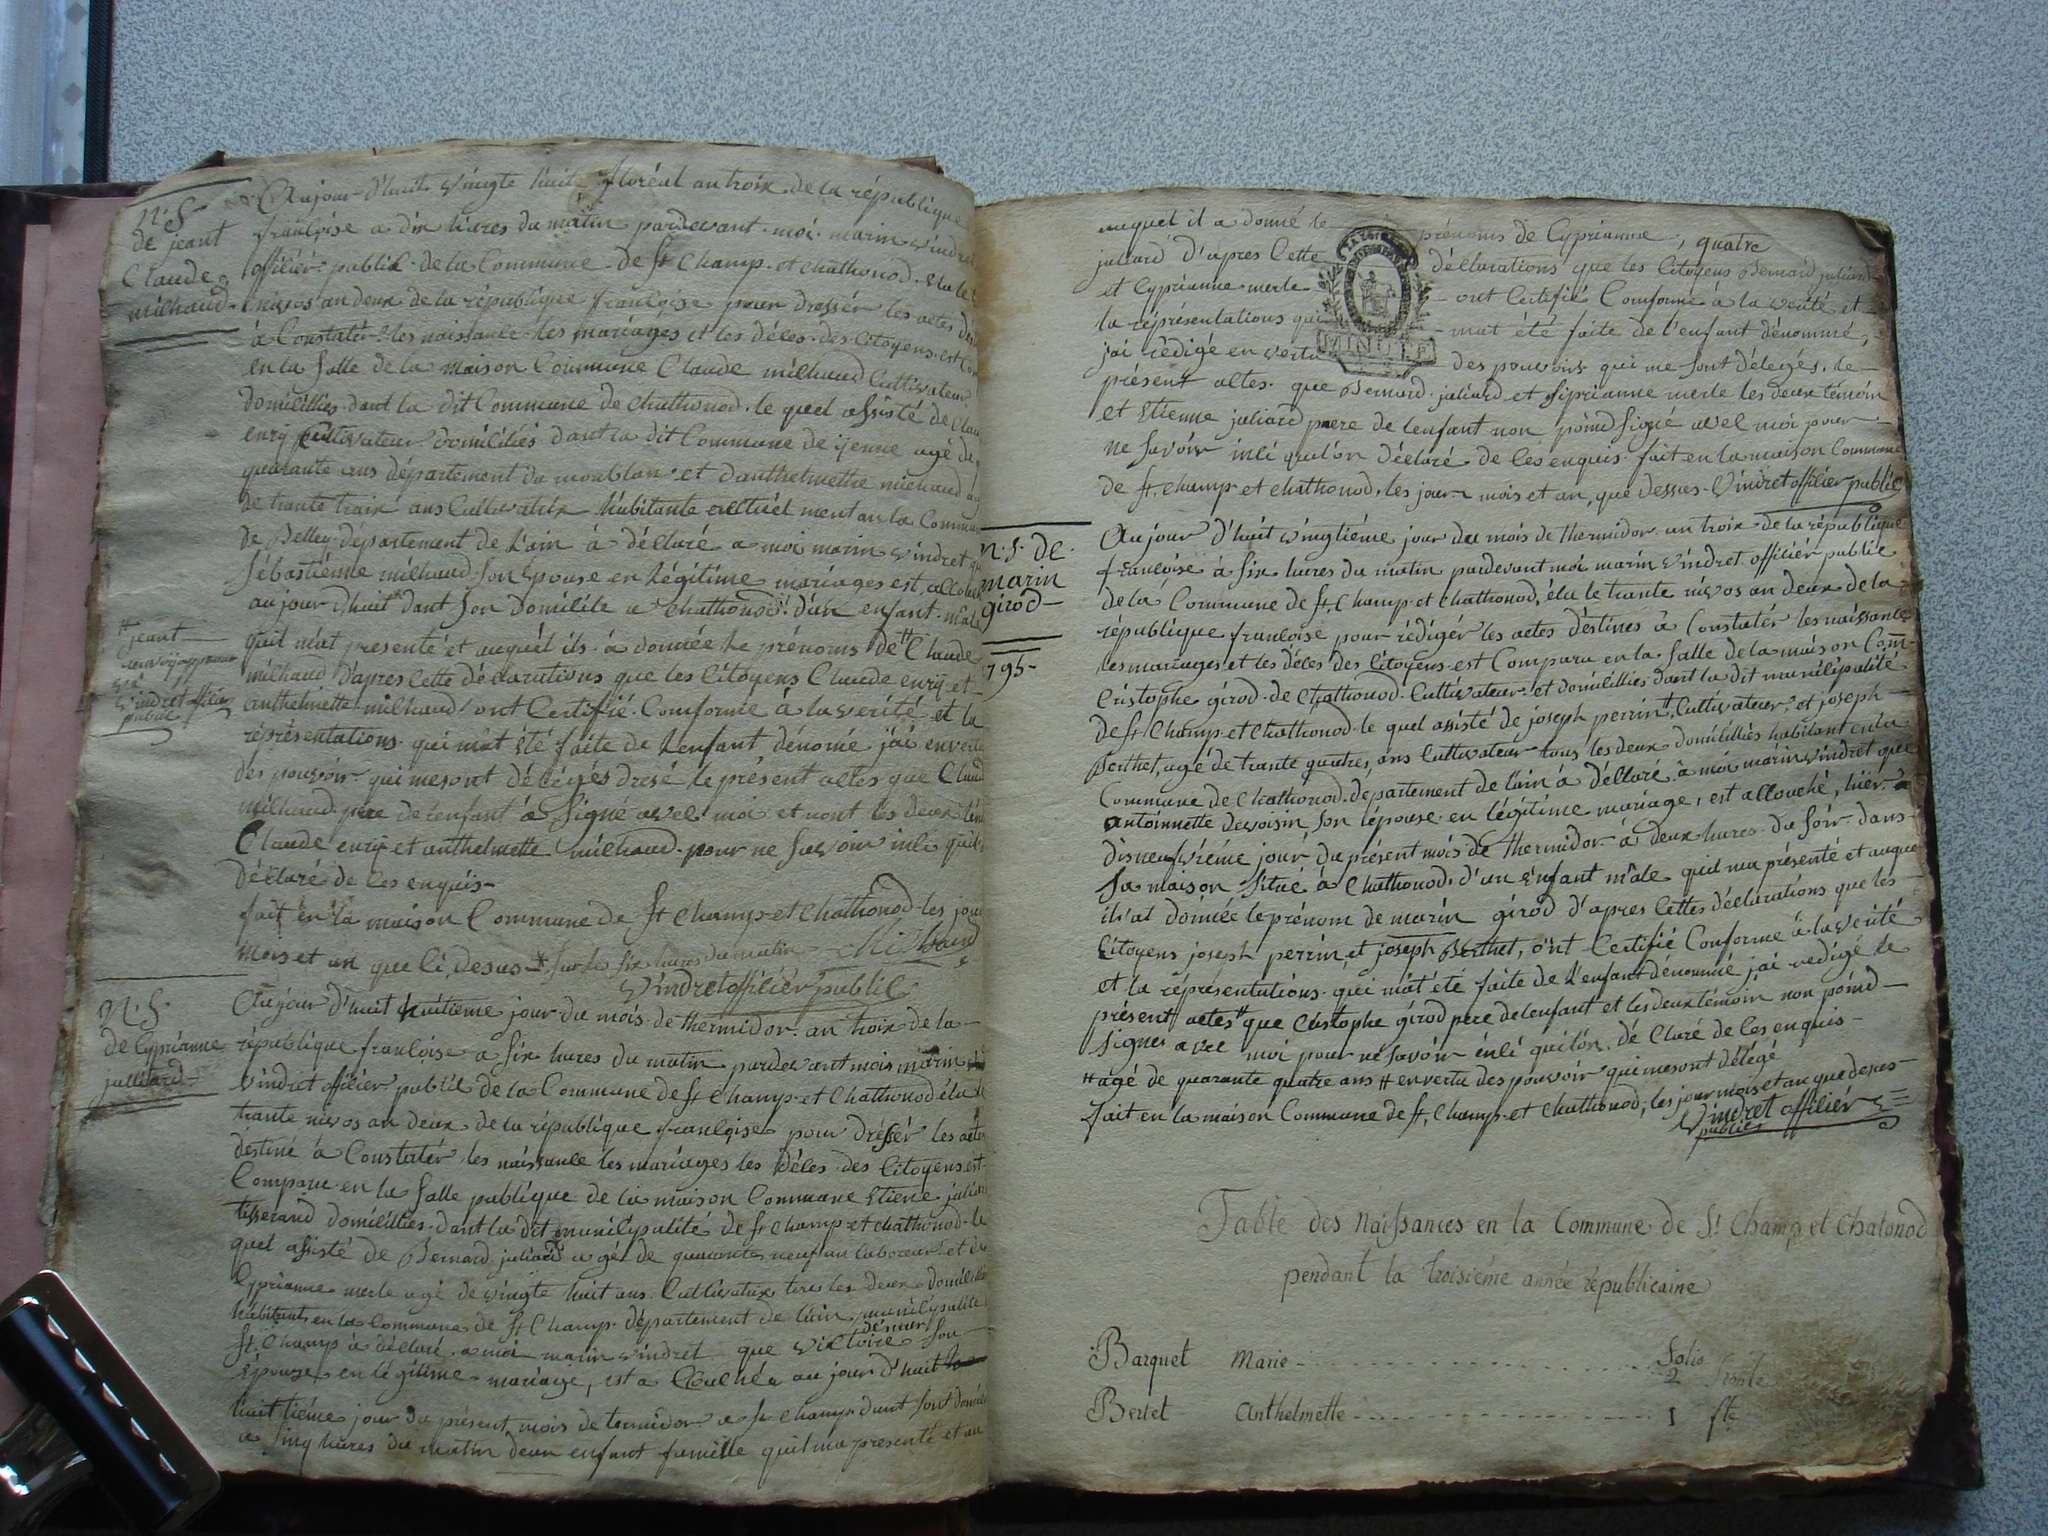 N. S.
de jeant
Claude
milhaud
Aujour d'huit vingte huit floréal an troix de la république
françoise a dix hures du matin pardevant moi marin vindret
officiér public de la Commune de St Champ et Chathonod élu le
nivos an deux de la république françoise pour drassér les actes
à Constatér les naissance les mariages et les déces des Citoyens est
en la salle de la maison Commune Claude milhaud Cultivateur
domicilliés dant la dit Commune de Chathonod le quel assisté de
enrij Cultivateur domiciliés dant la dit Commune de ijenne agé de
quarante ans département du monblan et d'anthelmette milhaud
de trante traix ans Cultivatrix habitante actuél ment an la Commune
de Belley département de l'ain à déclaré a moi marin vindret
Sébastiénne milhaud son épouse en légitime mariages est
au jour d'huit dant son domicile a Chathonod d'un enfant mâle
quil mat presenté et auquél ils à donnée le prénoms de Claude
milhaud d'apres cette déclarations que les Citoyens Claude enrij et
anthelmette milhaud ont Certifié Comforme à la verité et la
réprésentations qui mat été faite de l'enfant dénomé j'ai envertu
des pouvoir qui mesont délégés dresé le présent actes que
milhaud pere de lenfant à signé avec moi et nont les deux
Claude enrij et anthelmette milhaud pour ne savoir
déclaré de ces enquis
fait en la maison Commune de St Champ et Chathonod les jour
mois et an que ci desus sur les six hures du matin
vindret officiér public
jeant
vindret officiér
public
N. S.
de Cyprianne
julliard
Aujour d'huit huitieme jour du mois de thermidor an troix de la
république françoise a six hures du matin pardevant mois marin
vindret officiér public de la Commune de St Champ et Chathonod élu
trante nivos an deux de la république françoise pour drésser les actes
destiné à Constatér les naissance les mariages les déces des Citoyens est
Comparu en la salle publique de la maison Commune Etiene
tisserand domicillies dant la dit municipalité de St Champ et Chathonod le
quel assisté de Bernard juliard agé de quarante neuf an laboreur et de
Cyprianne merle agé de vingte huit ans Cultivatrix tous les deux
habitant en la Commune de St Champ département de l'ain municipalité
St Champ à déclaré a moi marin vindret que victoire son
épouse en légitime mariage, est a Couchée au jour d'huit
huit tiéme jour du présent mois de termidor a St Champ dant
a sinq hures du matin deun enfant famélle quil ma presenté et au
auquel il a donné le prénoms de Cyprianne, quatre
juliard d'apres Cette déclarations que les Citoyens Bernard juliard
et Cyprianne merle ont Certifié Comforme à la verité et
la réprésentations qui mat été faite de l'enfant dénommé,
j'ai rédigé en vertu des pouvoirs qui me sont délegés le
MINUTE
présent actes que Bernard juliard et siprianne merle les deux témoin
et Etienne juliard paere de lenfant non poind signé avec moi pour
ne savoir quil on déclaré de ces enquis fait en la maison Commune
de St Champ et Chathonod les jour mois et an que dessus Vindret officiér public
N. S. de
marin
girod
1795
Aujour d'huit vingtiéme jour du mois de thermidor an troix de la république
françoise à six hures du matin pardevant moi marin vindret officiér public
de la Commune de St Champ et Chathonod, élu le trante nivos an deux de la
république françoise pour rédigér les actes déstines à Constatér les naissance
les mariages et les déces des Citoyens est Comparu en la salle de la maison Comm
Cristophe girod de Chathonod Cultivateur et domicilliés dant la dit municipalité
de St Champ et Chathonod le quel assisté de joseph perrin Cultivateur et joseph
Berthet, agé de trante quatres ans Cultivateur tous les deux domicilliés habitant en la
Commune de Chathonod département de l'ain à déclaré à moi marin vindret que
antoinnette devoisin son épouse en légitime mariage, est a Couché, hiér
disneuviéme jour du présent mois de thermidor à deux hures du soir dans
sa maison situé à Chathonod d'un enfant mâle quil ma présenté et auque
ils at donnée le prénom de marin girod d'apres cettes déclarations que les
Citoyens joseph perrin et joseph Berthet, ont Certifié Comforme à la verité
et la réprésentations qui mat été faite de l'enfant dénommé j'ai redigé le
présent actes que Cristophe girod pere de lenfant et les deux témoin non poind
signer avec moi pour ne savoir quil on déClaré de ces enquis
agé de quarante quatre ans en vertu des pouvoir qui mesont délégé
fait en la maison Commune de St Champ et Chathonod, les jour mois et an que desus
Vindret officiér
public
Table des Naissances en la Commune de St Champ et Chatonod
pendant la troisiéme année républicaine
Folio
Barquet Marie 2
Bertet Anthelmette 1